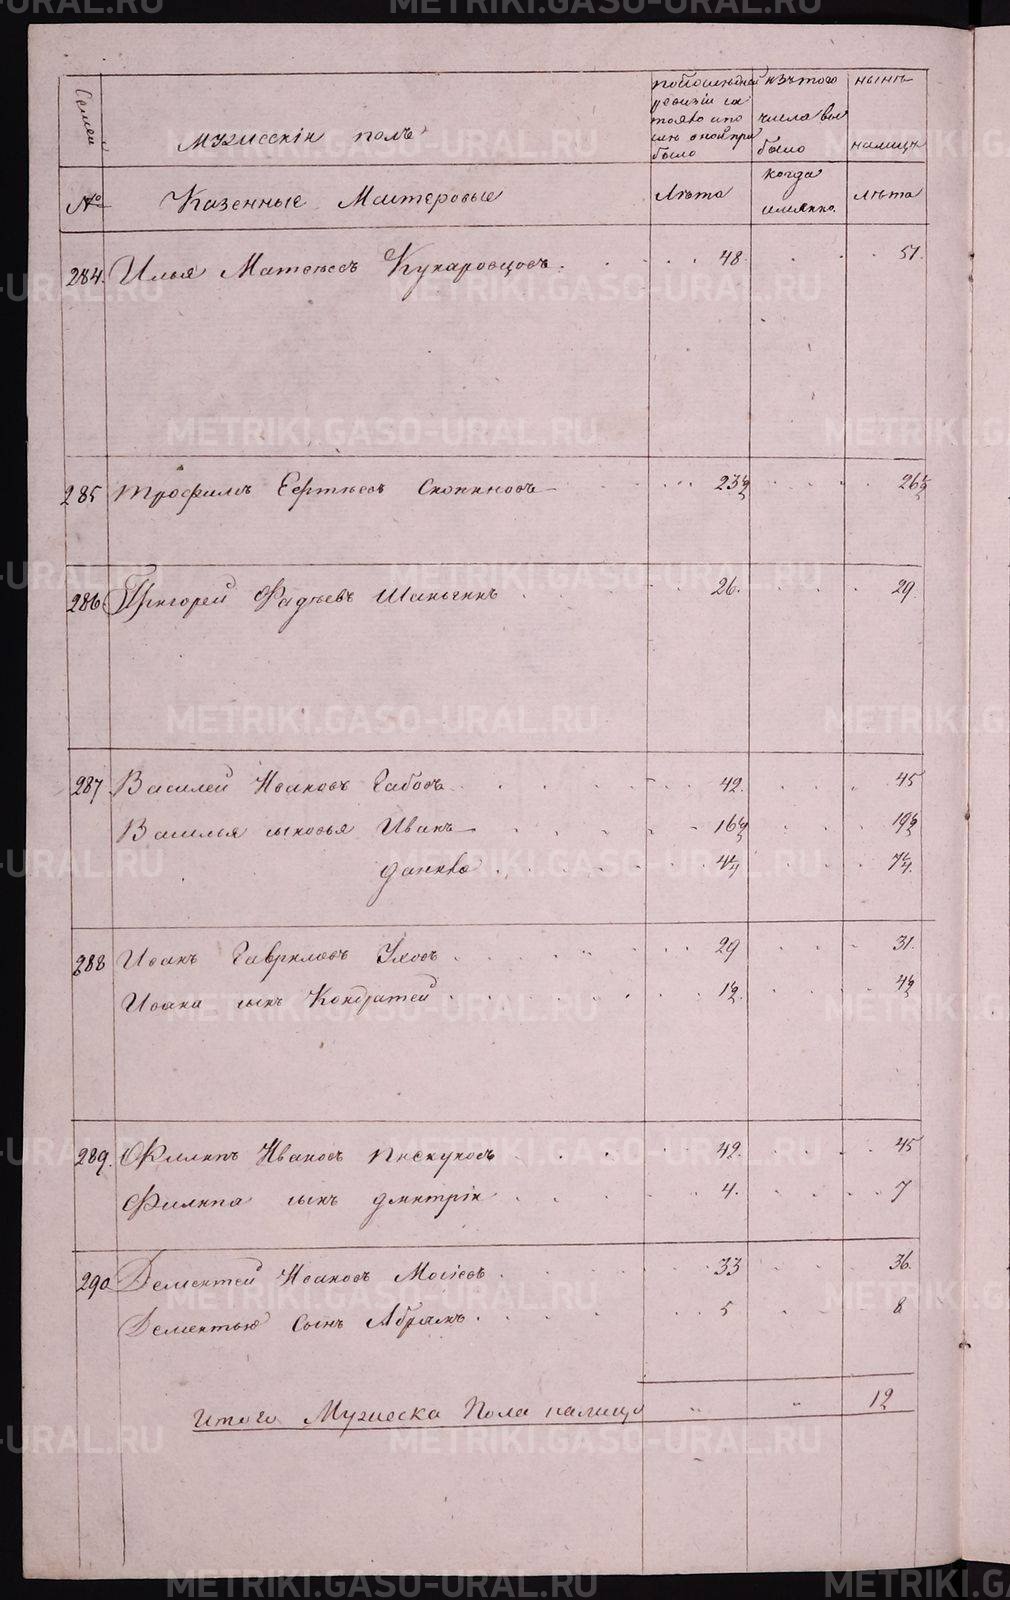 Семьи
Мужесскiй полъ
по последней ревизiи состояло и после оной прибыло
изъ того числа выбыло
ныне налицо
№
Казенные Мастеровые
Лѣта
когда имянно.
лѣта
284. Илья Матвѣевъ Кукаровцовъ 48 51.
285 трофимъ Сергѣевъ 23½ 26½
286 Григорей Фадѣевъ Шаньгинъ 26. 29.
287 Василей Ивановъ Габовъ 42. 45
Василья сыновья Иванъ 16½ 19½
данило 4¼ 7¼.
288 Иванъ Гавриловъ Уховъ 29 31.
Ивана сынъ Кондратей 1½. 4½
289. Филипъ Ивановъ пискуновъ 42. 45
Филипа сынъ дмитрiй 4. 7
290 Дементей Ивановъ Мосiевъ 33 36.
Дементью Сынъ Абрамъ 5 8
Итого Мужеска Пола налицо " " 12
METRIKI.GASO-URAL.RU